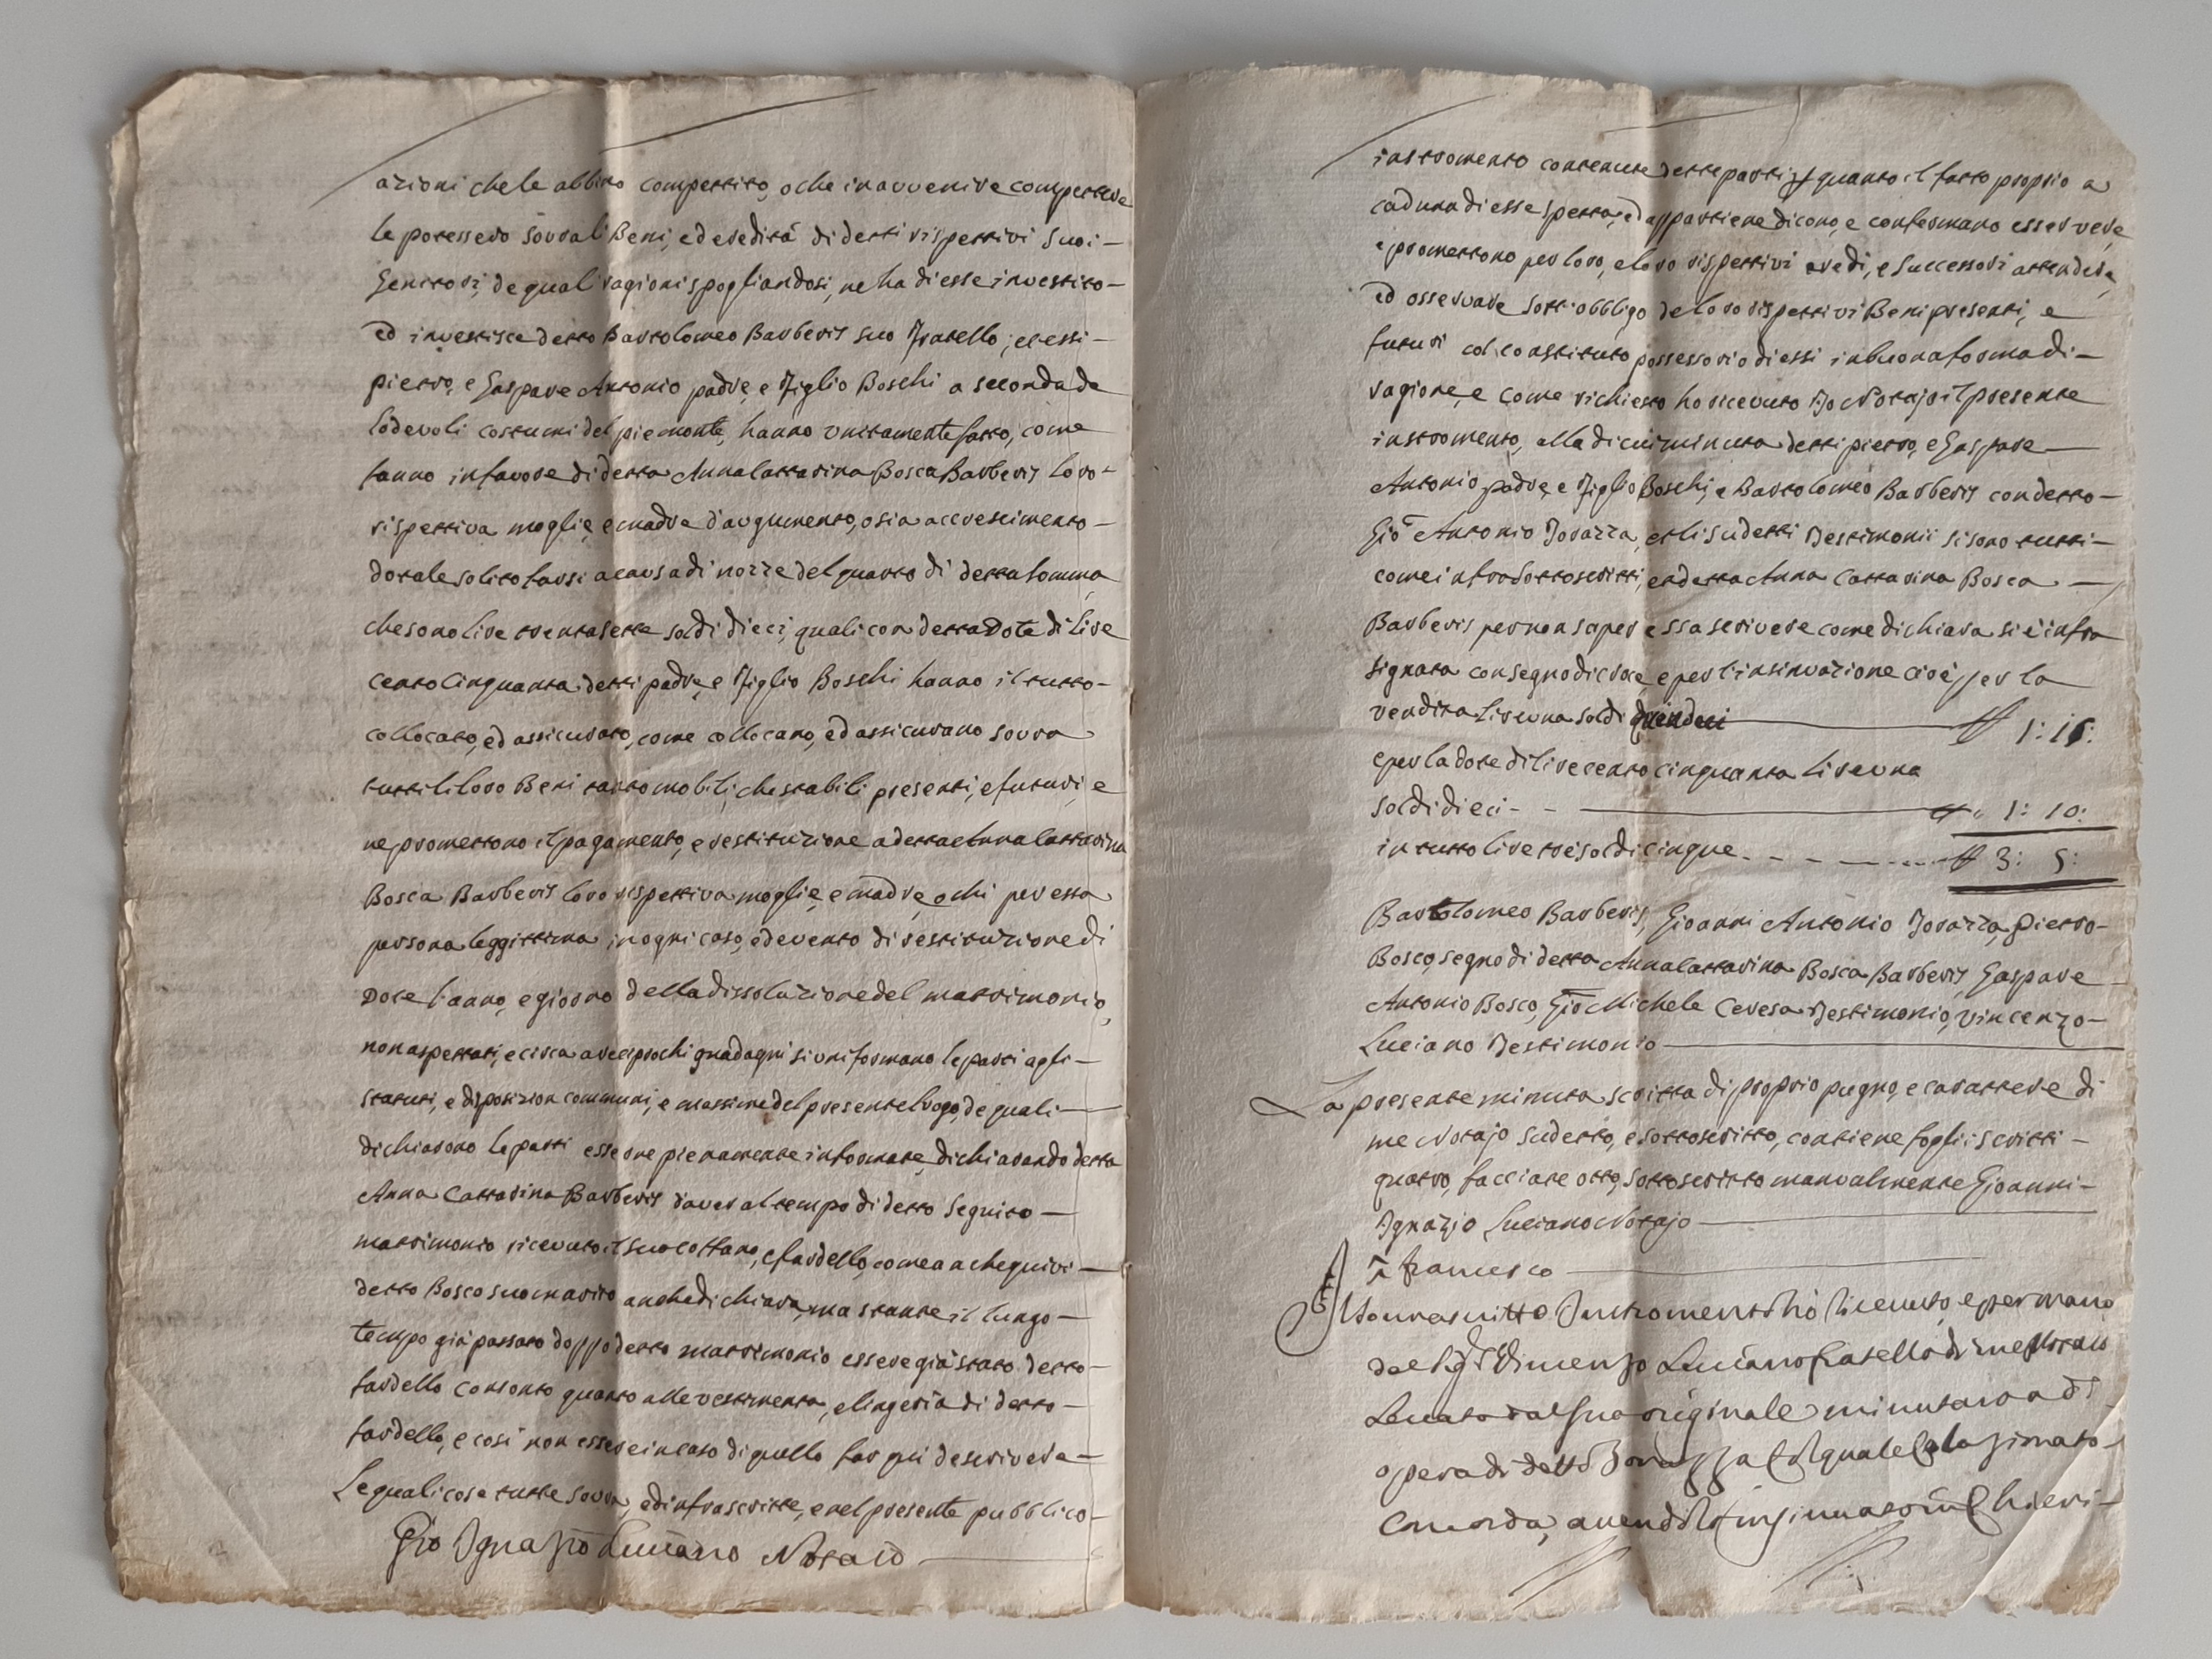 azioni che le abbino compettito, o che in avvenire competere
le potessero sovra li Beni, ed eredità di detti rispettivi suoi -
Genitori, de quali ragioni spogliandosi, ne ha di esse investito -
ed investisce detto Bartolomeo Barberis suo Fratello; et essi -
pietro, e Gaspare Antonio padre, e Figlio Boschi a seconda de
lodevoli costumi del piemonte, hanno unitamente fatto, come
fanno in favore di detta Anna Cattarina Bosca Barberis loro -
rispettiva moglie, e madre d'augumento, o sia accrescimento -
dotale solito farsi a causa di nozze del quarto di detta somma
che sono lire trenta sette soldi dieci, quali con detta Dote di Lire
cento cinquanta detti padre, e Figlio Boschi hanno il tutto -
collocato, ed assicurato, come collocano, ed assicurano sovra
tutti li loro Beni tanto mobili, che stabili presenti, e futuri, e
ne promettono il pagamento, e restituzione a detta Anna Cattarina
Bosca Barberis loro rispettiva moglie, e madre, o chi per essa
persona leggittima in ogni caso, ed evento di restituzione di
Dote l'anno, e giorno della dissoluzione del matrimonio,
non aspettati, e circa a reciprochi guadagni si uniformano le parti agli -
statuti, e disposizion communi, e massime del presente luogo, de quali -
dichiarono le parti esserne pienamente informate, dichiarando detta
Anna Cattarina Barberis d'aver al tempo di detto seguito -
matrimonio ricevuto il suo cottano, e fardello, come anche quivi -
detto Bosco suo marito anche dichiara, ma stante il lungo -
tempo già passato doppo detto matrimonio essere già stato detto -
fardello consonto quanto alle vestimenta, e lingeria di detto -
fardello, e così non essere in caso di quello far qui descrivere -
Le quali cose tutte sovra, ed infrascritte, e nel presente pubblico -
Gio Ignazio Luciano Notaio
instromento contenute dette parti per quanto il fatto proprio a
caduna di esse spetta, ed appartiene dicono, e confermano esser vere,
e promettono per loro, e loro rispettivi eredi, e successori attendere,
ed osservare sott'obbligo de loro rispettivi Beni presenti, e
futuri col constituto possessorio di essi in buona forma di -
ragione, e come richiesto ho ricevuto Io Notajo il presente
instromento, alla di cui minuta detti pietro, e Gaspare -
Antonio padre, e Figlio Boschi, e Bartolomeo Barberis con detto -
Gio Antonio Tovazza, et li sudetti Testimonii si sono tutti -
come infra sottoscritti, et detta Anna Cattarina Bosca -
Barberis per non saper essa scrivere come dichiara si è infra
signata con segno di croce, e per l'insinuazione cioè per la
vendita Lire una soldi quindeci 1: 15:
e per la dote di lire cento cinquanta lire una
soldi dieci - - 1: 10:
in tutto lire tre soldi cinque 3: 5:
Bartolomeo Barberis, Gioanni Antonio Tovazza, pietro -
Bosco, segno di detta Anna Cattarina Bosca Barberis, Gaspare
Antonio Bosco, Gio Michele Ceresa Testimonio, Vincenzo -
Luciano Testimonio
La presente minuta scritta di proprio pugno, e carattere di
me Notajo sudetto, e sottoscritto, contiene fogli scritti -
quatro, facciate otto, sottoscritto manualmente Gioanni -
Ignazio Luciano Notajo
Francesco
Il sovrascritto Instromento hò ricevuto, e per mano
del Sigr Vincenzo Luciano fratello di me Notaio
Levato dal suo originale minutaro ad
opera di detto Tovazza col quale collazionato
Concorda, avendolo insinuato in Chieri -